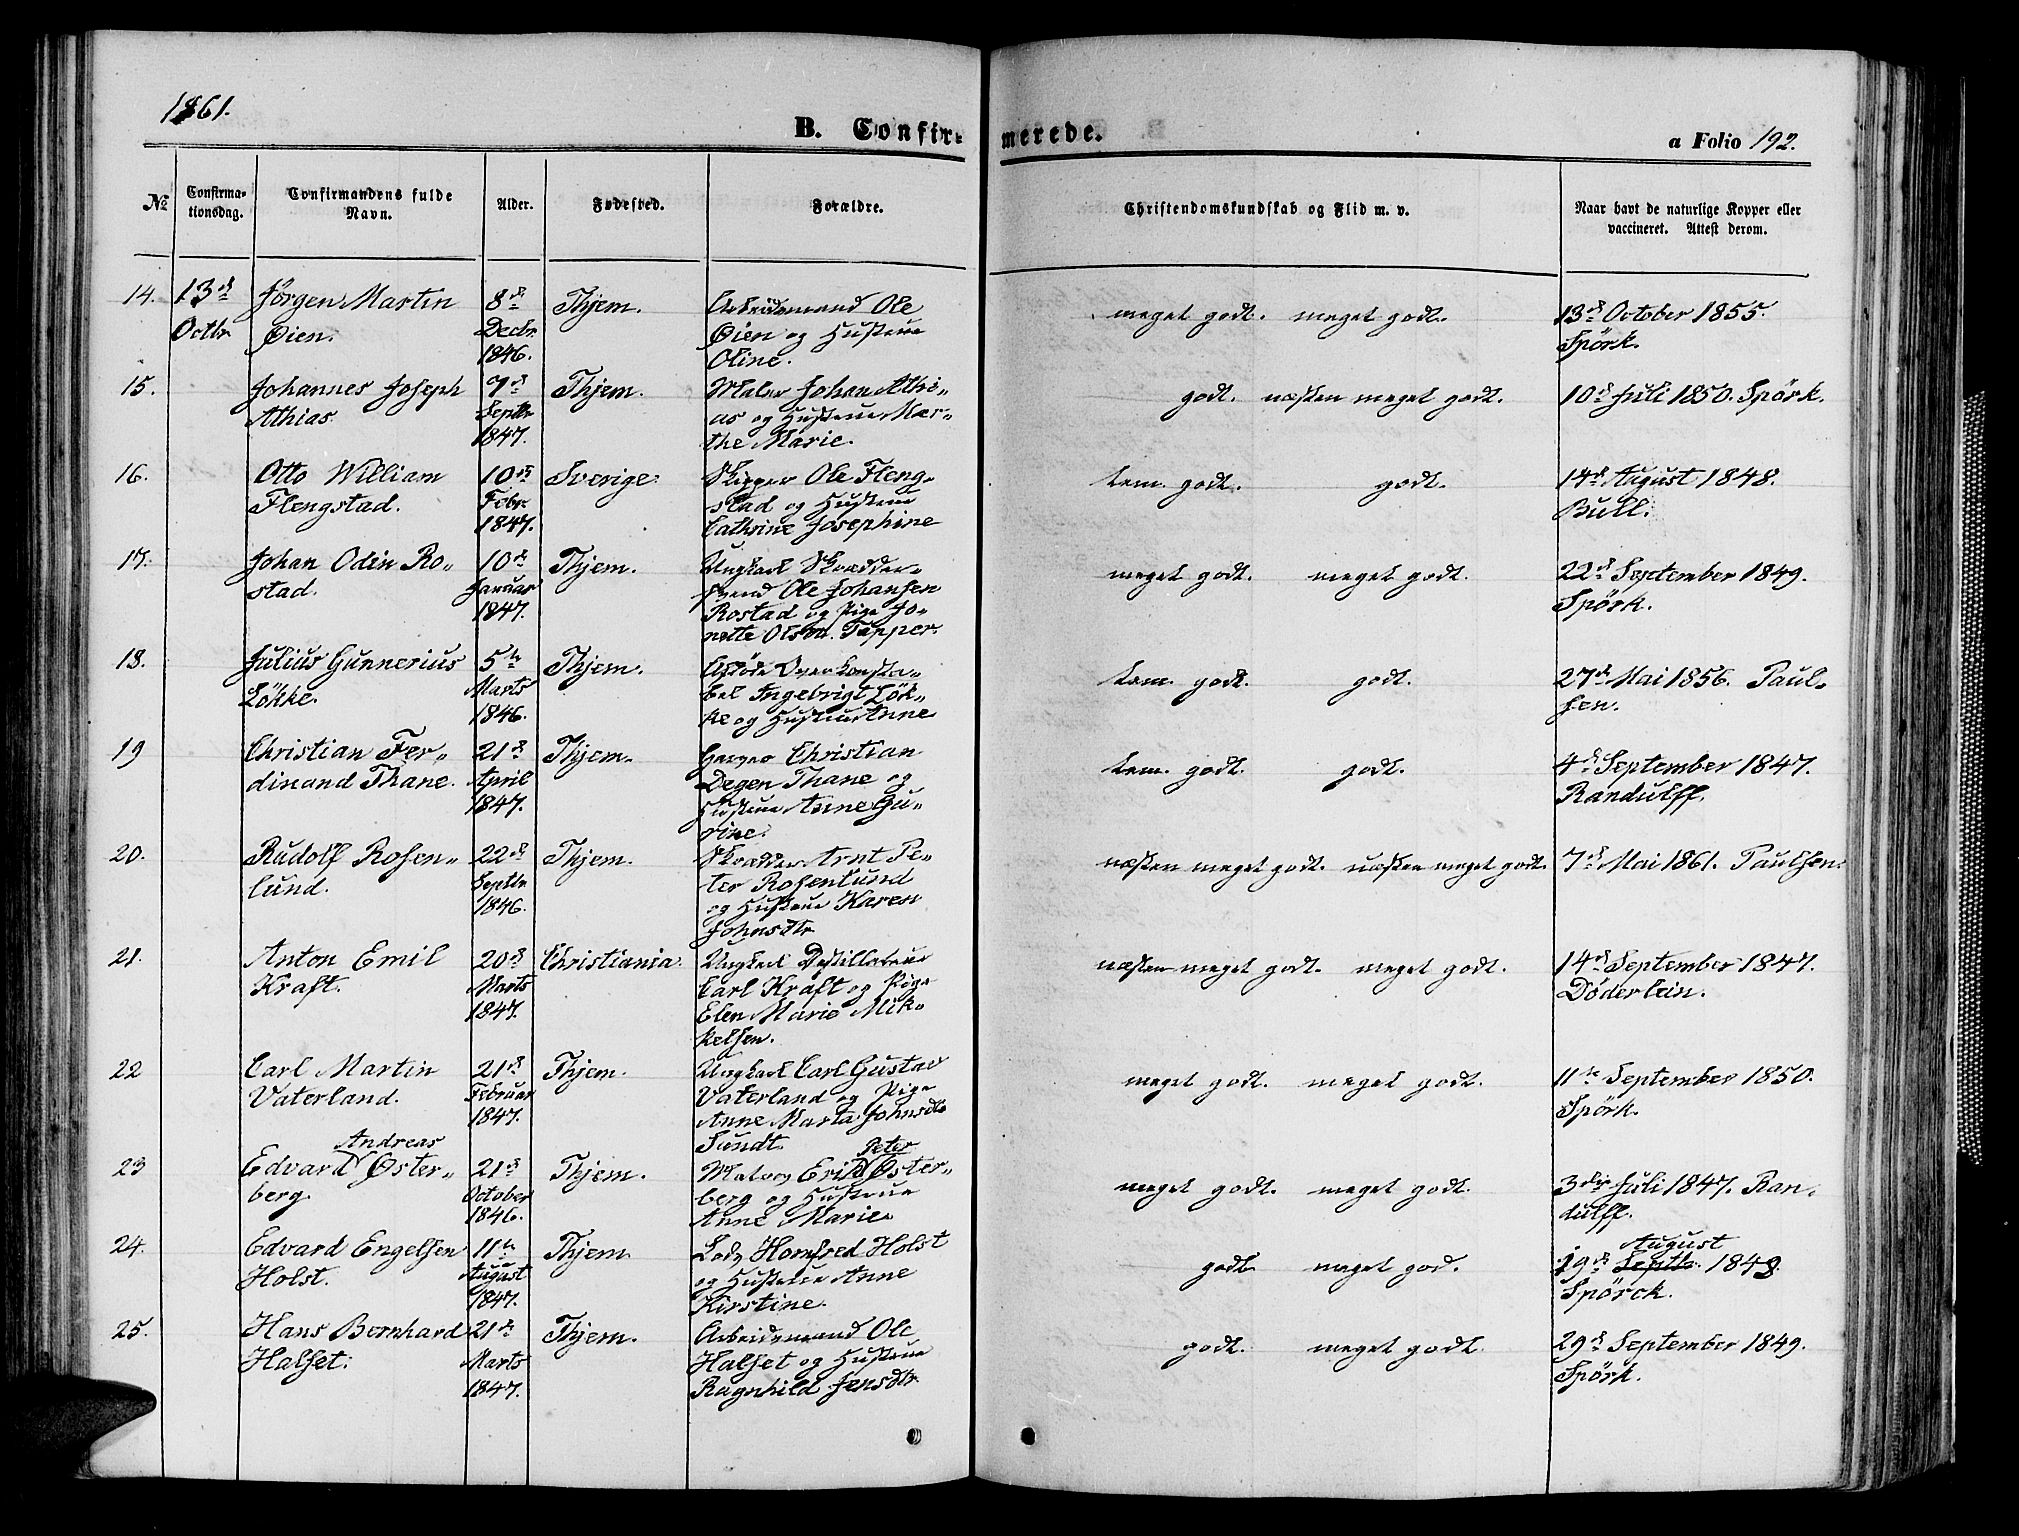 1861.
B. Confirmerede.
a Folio 192.
№ Confirmationsdag. Confirmandens fulde Navn. Alder. Fødested. Forældre. Christendomskundskab og Flid m. v. Naar havt de naturlige Kopper eller vaccineret. Attest derom.
14. 13de Jørgen Martin 8de Thjem. Arbeidsmand Ole meget godt. meget godt. 13de October 1855.
Octbr Øien. Decbr Øien og Hustrue Spörk.
1846. Oline.
15. Johannes Joseph 7de Thjem. Maler Johan Athi- godt. næsten meget godt. 10de Juli 1850. Spörk.
Athias. Septbr as og Hustrue Mar-
1847. the Marie.
16. Otto William 10de Sverige. Skipper Ole Fleng- tem. godt. godt. 14de August 1848.
Flengstad. Febr. stad og Hustrue Bull.
1847. Cathrine Josephine
17. Johan Odin Ro- 10de Thjem. Ungkarl Skrædder- meget godt. meget godt. 22de September 1849.
stad. Januar svend Ole Johansen Spörk.
1847. Rostad og Pige Jo-
nette Olsdtr. Tapper.
18. Julius Gunnerius 5te Thjem. Afdøde Overkonsta- tem. godt. godt. 27de Mai 1856. Paul-
Løkke. Marts bel Ingebrigt Løk- sen.
1846. ke og Hustrue Anne
19 Christian Fer- 21de Thjem. Christian tem. godt. godt. 4de September 1847.
dinand Thane. April Degen Thane og Randulff.
1847. Hustrue Anne Gu-
rine.
20. Rudolf Rosen- 22de Thjem. Skrædder Arnt Pe- næsten meget godt. næsten meget godt. 7de Mai 1861. Paulsen.
lund. Septbr ter Rosenlund
1846. og Hustrue Karen
Johnsdtr
21. Anton Emil 20de Christiania. Ungkarl Destillateur næsten meget godt. meget godt. 14de September 1847.
Kraft. Marts Carl Kraft og Pige Döderlein.
1847. Elen Marie Mik-
kelsen.
22 Carl Martin 21de Thjem. Ungkarl Carl Gustav meget godt. meget godt. 11te September 1850.
Vaterland. Februar Vaterland og Pige Spörk.
1847. Anne Marta Johnsdtr
Sundt.
Andreas Peter
23 Edvard Øster- 21de Thjem. Maler Erik Øster- meget godt. meget godt. 3die Juli 1847. Ran-
berg. October berg og Hustrue dulff.
1846. Anne Marie.
August
24. Edvard Engelsen 11te Thjem. Lods Homfred Holst godt meget god. 19de Septbr. 1848.
Holst. August og Hustrue Anne Spörck.
1847. Kirstine.
25. Hans Bernhard 21de Thjem. Arbeidsmand Ole godt. meget godt. 29de September 1849.
Halset. Marts Halset og Hustrue Spörk.
1847. Ragnhild Jensdtr.